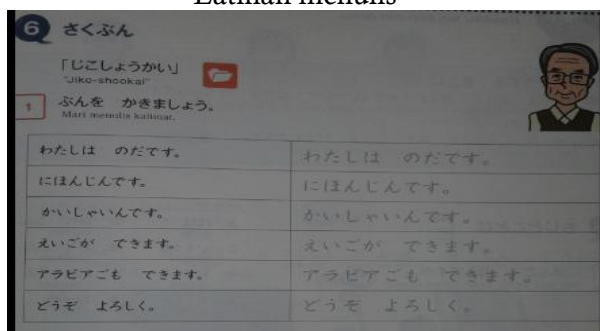 Latihan menulis
6 さくぶん
「じこしょうかい」
"Jiko-shookai"
1 ぶんを かきましょう。
Mari menulis kalimat.
わたしは のだです。 わたしは のだです。
にほんじんです。 にほんじんです。
かいしゃいんです。 かいしゃいんです。
えいごが できます。 えいごが できます。
アラビアごも できます。 アラビアごも できます。
どうぞ よろしく。 どうぞ よろしく。